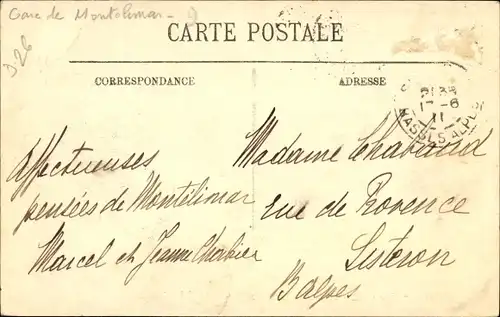 Gare de Montélimar - 9
D26
CARTE POSTALE
CORRESPONDANCE
ADRESSE
21 35
17-6
11
BASSES ALPES
Affectueuses
pensées de Montélimar
Marcel et Jeanne
Madame Chabaud
rue de Provence
Sisteron
Balpes